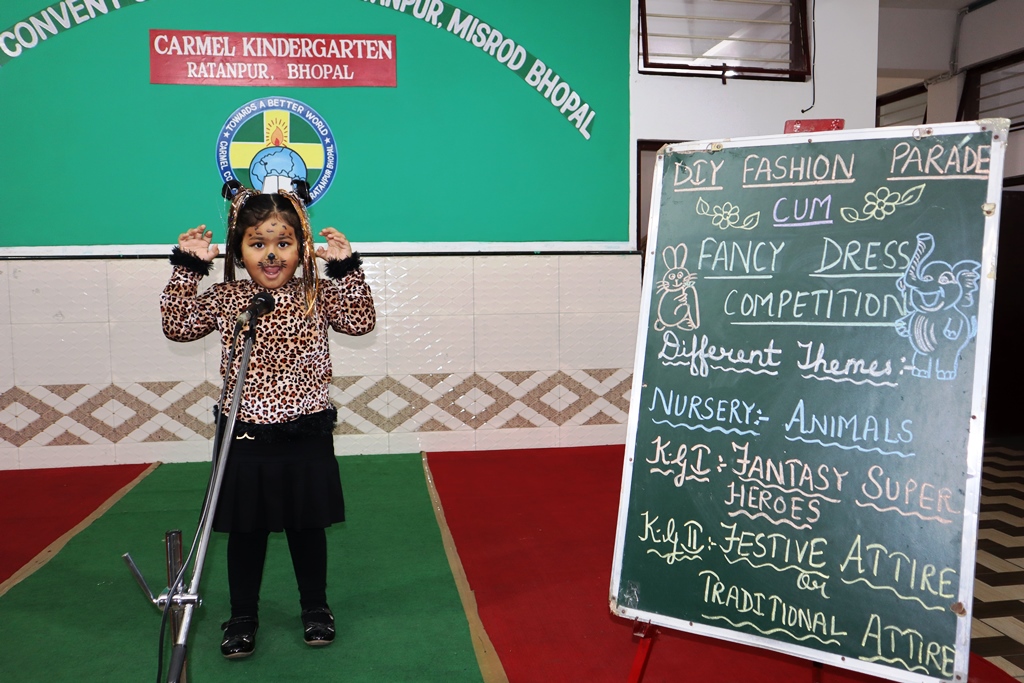 CONVENT
TANPUR, MISROD BHOPAL
CARMEL KINDERGARTEN
RATANPUR, BHOPAL
TOWARDS A BETTER WORLD
CARMEL CO
RATANPUR BHOPAL
DIY FASHION PARADE
CUM
FANCY DRESS
COMPETITION
Different Themes:-
NURSERY:- ANIMALS
K.G I:- FANTASY SUPER
HEROES
K.G II:- FESTIVE ATTIRE
OR
TRADITIONAL ATTIRE